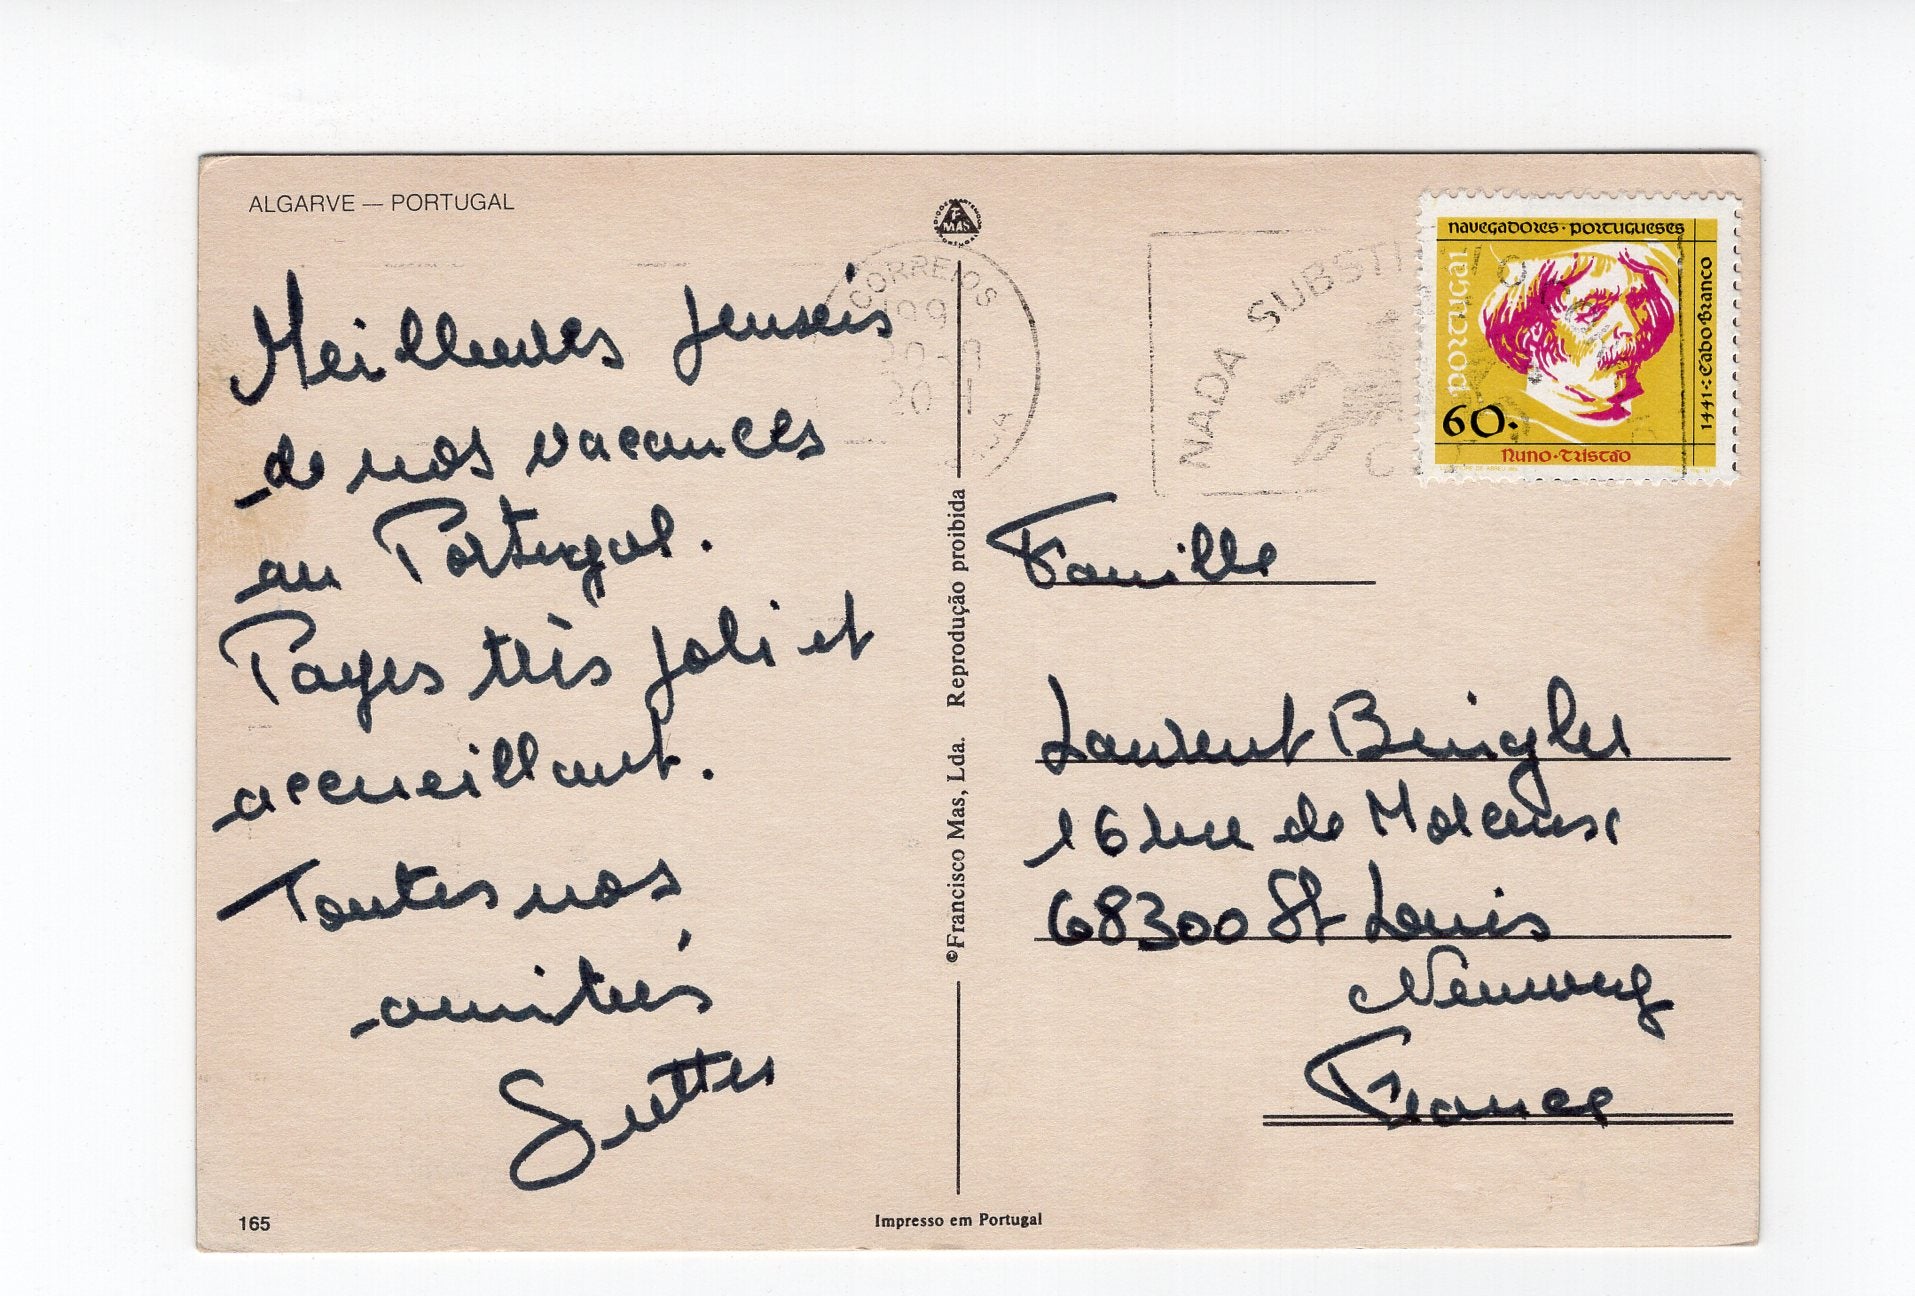 ALGARVE — PORTUGAL
Meilleures pensées
de nos vacances
au Portugal.
Pays très joli et
accueillant.
Toutes nos
amitiés
165
MAS
©Francisco Mas, Lda. Reprodução proibida
Impresso em Portugal
CORREIOS
NADA SUBSTITUI O
navegadores · portugueses
portugal
1441 : Cabo Branco
60.
Nuno · Tristão
Famille
Laurent
16 rue de
68300 St Louis
Neuweg
France